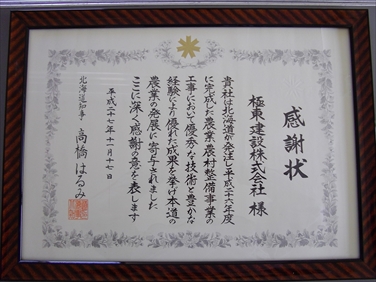 感謝状
極東建設株式会社 様
貴社は北海道が発注し平成二十六年度
に完成した農業農村整備事業の
工事において優秀な技術と豊かな
経験により優れた成果を挙げ本道の
農業の発展に寄与されました
ここに深く感謝の意を表します
平成二十七年十一月十七日
北海道知事 高橋はるみ